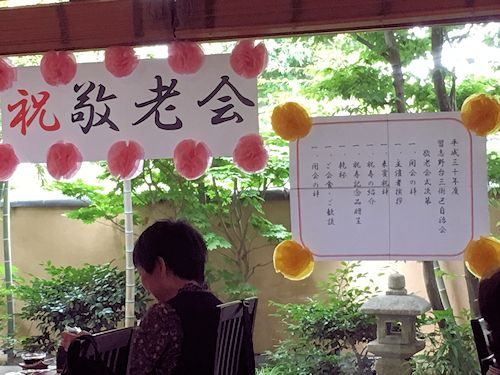 祝敬老会
平成三十年度
習志野台三街区自治会
敬老会式次第
一、開会の辞
一、主催者挨拶
一、来賓祝辞
一、祝寿の紹介
祝寿記念品贈呈
一、乾杯
一、ご会食・ご歓談
一、閉会の辞